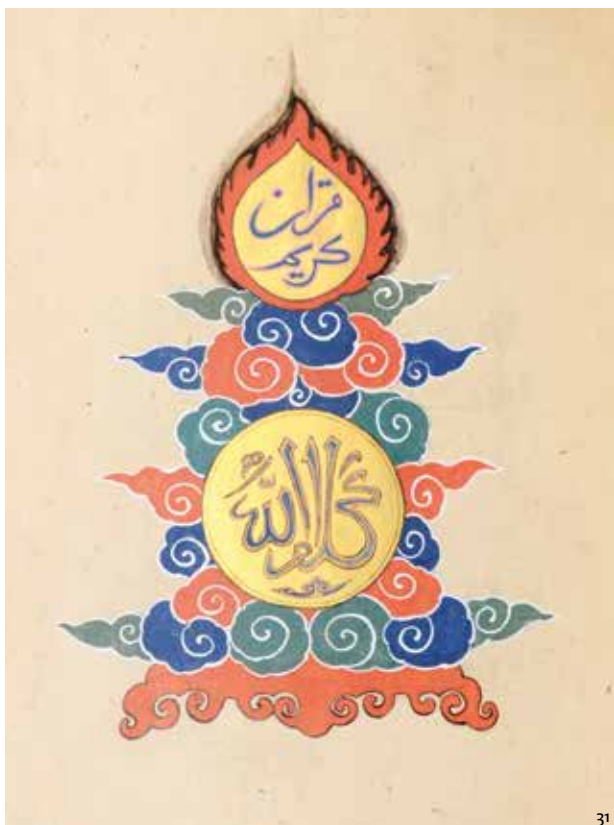 قران
كريم
كلام الله
31